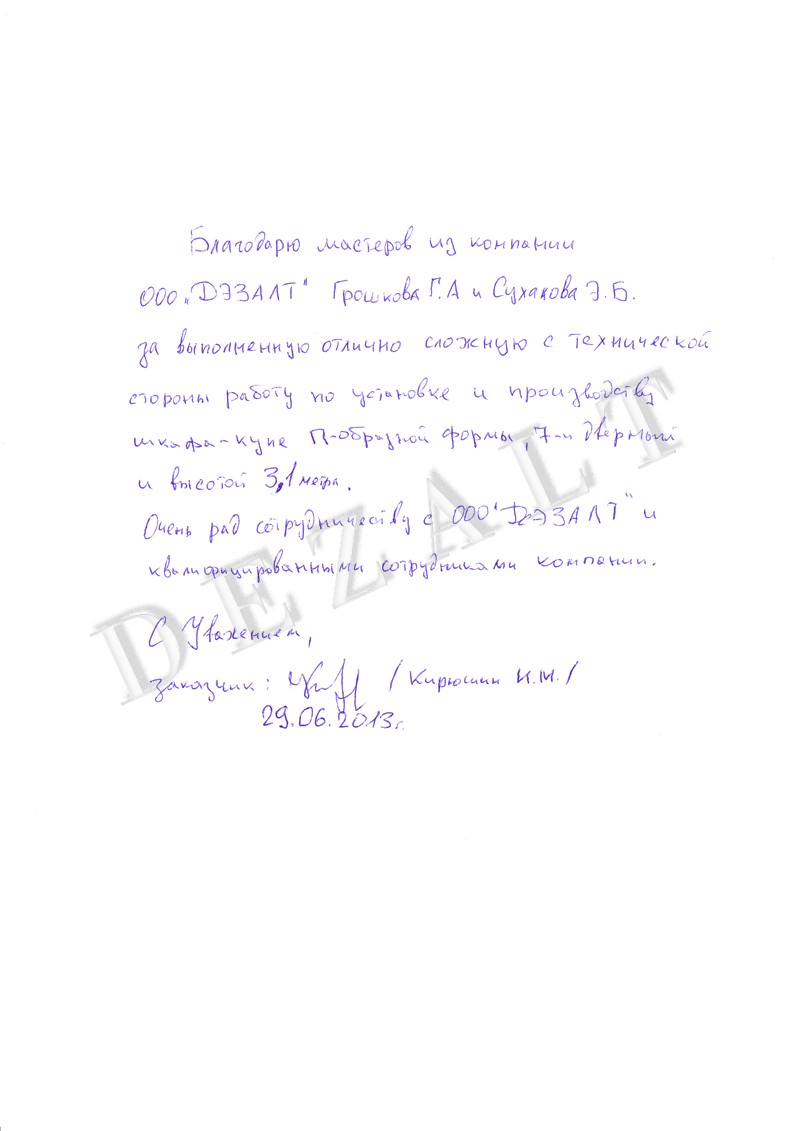 Благодарю мастеров из компании
ООО „ДЭЗАЛТ" Грошкова Г.А и Сухакова Э.Б.
за выполненную отлично сложную с технической
стороны работу по установке и производству
шкафа-купе П-образной формы, 7-и дверный
и высотой 3,1 метра.
Очень рад сотрудничеству с ООО "ДЭЗАЛТ" и
квалифицированными сотрудниками компании.
С Уважением,
заказчик: /Кирюшин И.М./
29.06.2013г.
DEZALT